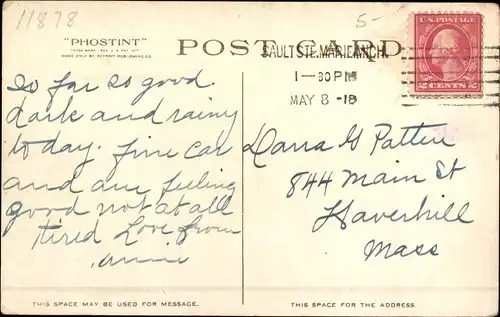 11878
5-
"PHOSTINT"
TRADE MARK REG. U.S. PAT. OFF.
MADE ONLY BY DETROIT PUBLISHING CO.
POST CARD
SAULT STE. MARIE MICH.
1-30 PM
MAY 8-18
U.S. POSTAGE
2 CENTS 2
So far so good
dark and rainy
today. fine car
and are feeling
good not at all
tired Love from
Annie
Dana G Patten
844 Main St
Haverhill
Mass
THIS SPACE MAY BE USED FOR MESSAGE.
THIS SPACE IS FOR THE ADDRESS.